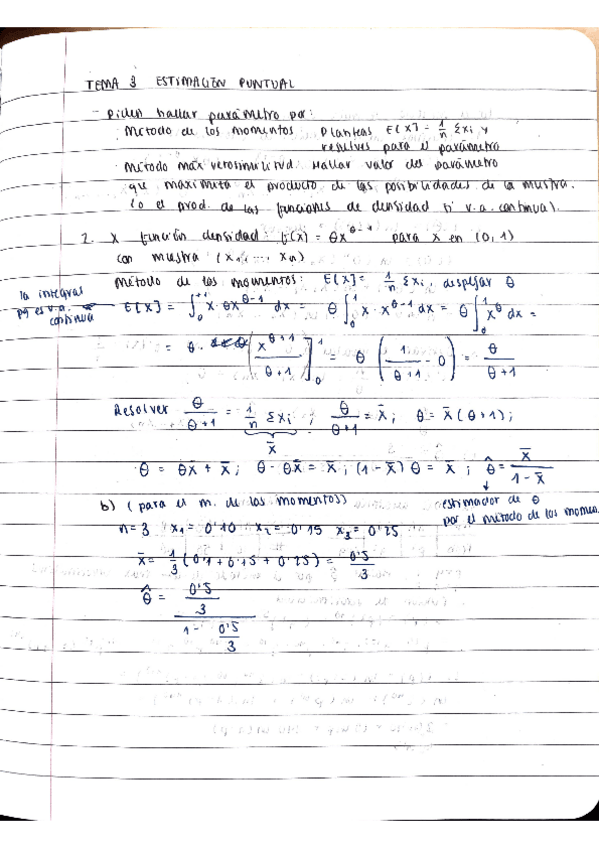 TEMA 3 ESTIMACIÓN PUNTUAL
- Piden hallar parámetro por:
· Método de los momentos Planteas E[X] = 1/n Σxi y
resuelves para el parámetro
· Método máx verosimilitud. Hallar valor del parámetro
que maximiza el producto de las posibilidades de la muestra.
(o el prod. de las funciones de densidad si v.a. continua).
2. X función densidad: f(x) = θx^(θ-1) para x en (0,1)
con muestra (x1, ... xn)
Método de los momentos: E[X] = 1/n Σxi, despejar θ
la integral pq es v.a. continua
E[X] = ∫₀^{+1} x·θx^(θ-1) dx = θ ∫₀^1 x·x^(θ-1) dx = θ ∫₀^1 x^θ dx =
= θ · [x^(θ+1)/(θ+1)]₀^1 = θ (1/(θ+1) - 0) = θ/(θ+1)
Resolver θ/(θ+1) = 1/n Σxi ; θ/(θ+1) = x̄ ; θ = x̄(θ+1);
x̄
θ = θx̄ + x̄ ; θ - θx̄ = x̄ ; (1-x̄)θ = x̄ ; θ̂ = x̄/(1-x̄)
estimador de θ
por el método de los momen.
b) (para el m. de los momentos)
n=3 x1 = 0'10 x2 = 0'15 x3 = 0'25
x̄ = 1/3 (0'1 + 0'15 + 0'25) = 0'5/3
θ̂ = (0'5/3)/(1 - 0'5/3)